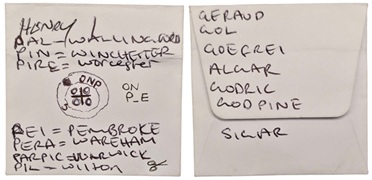 HENRY I
PAL = WALLINGFORD
PIN = WINCHESTER
PIRE = WORCESTER
ONP
ON
P_E
PEI = PEMBROKE
PERA = WAREHAM
PARPIC = WARWICK
PIL = WILTON
GERAUD
GOL
GOEFREI
ALGAR
GODRIC
GODPINE
SIGAR